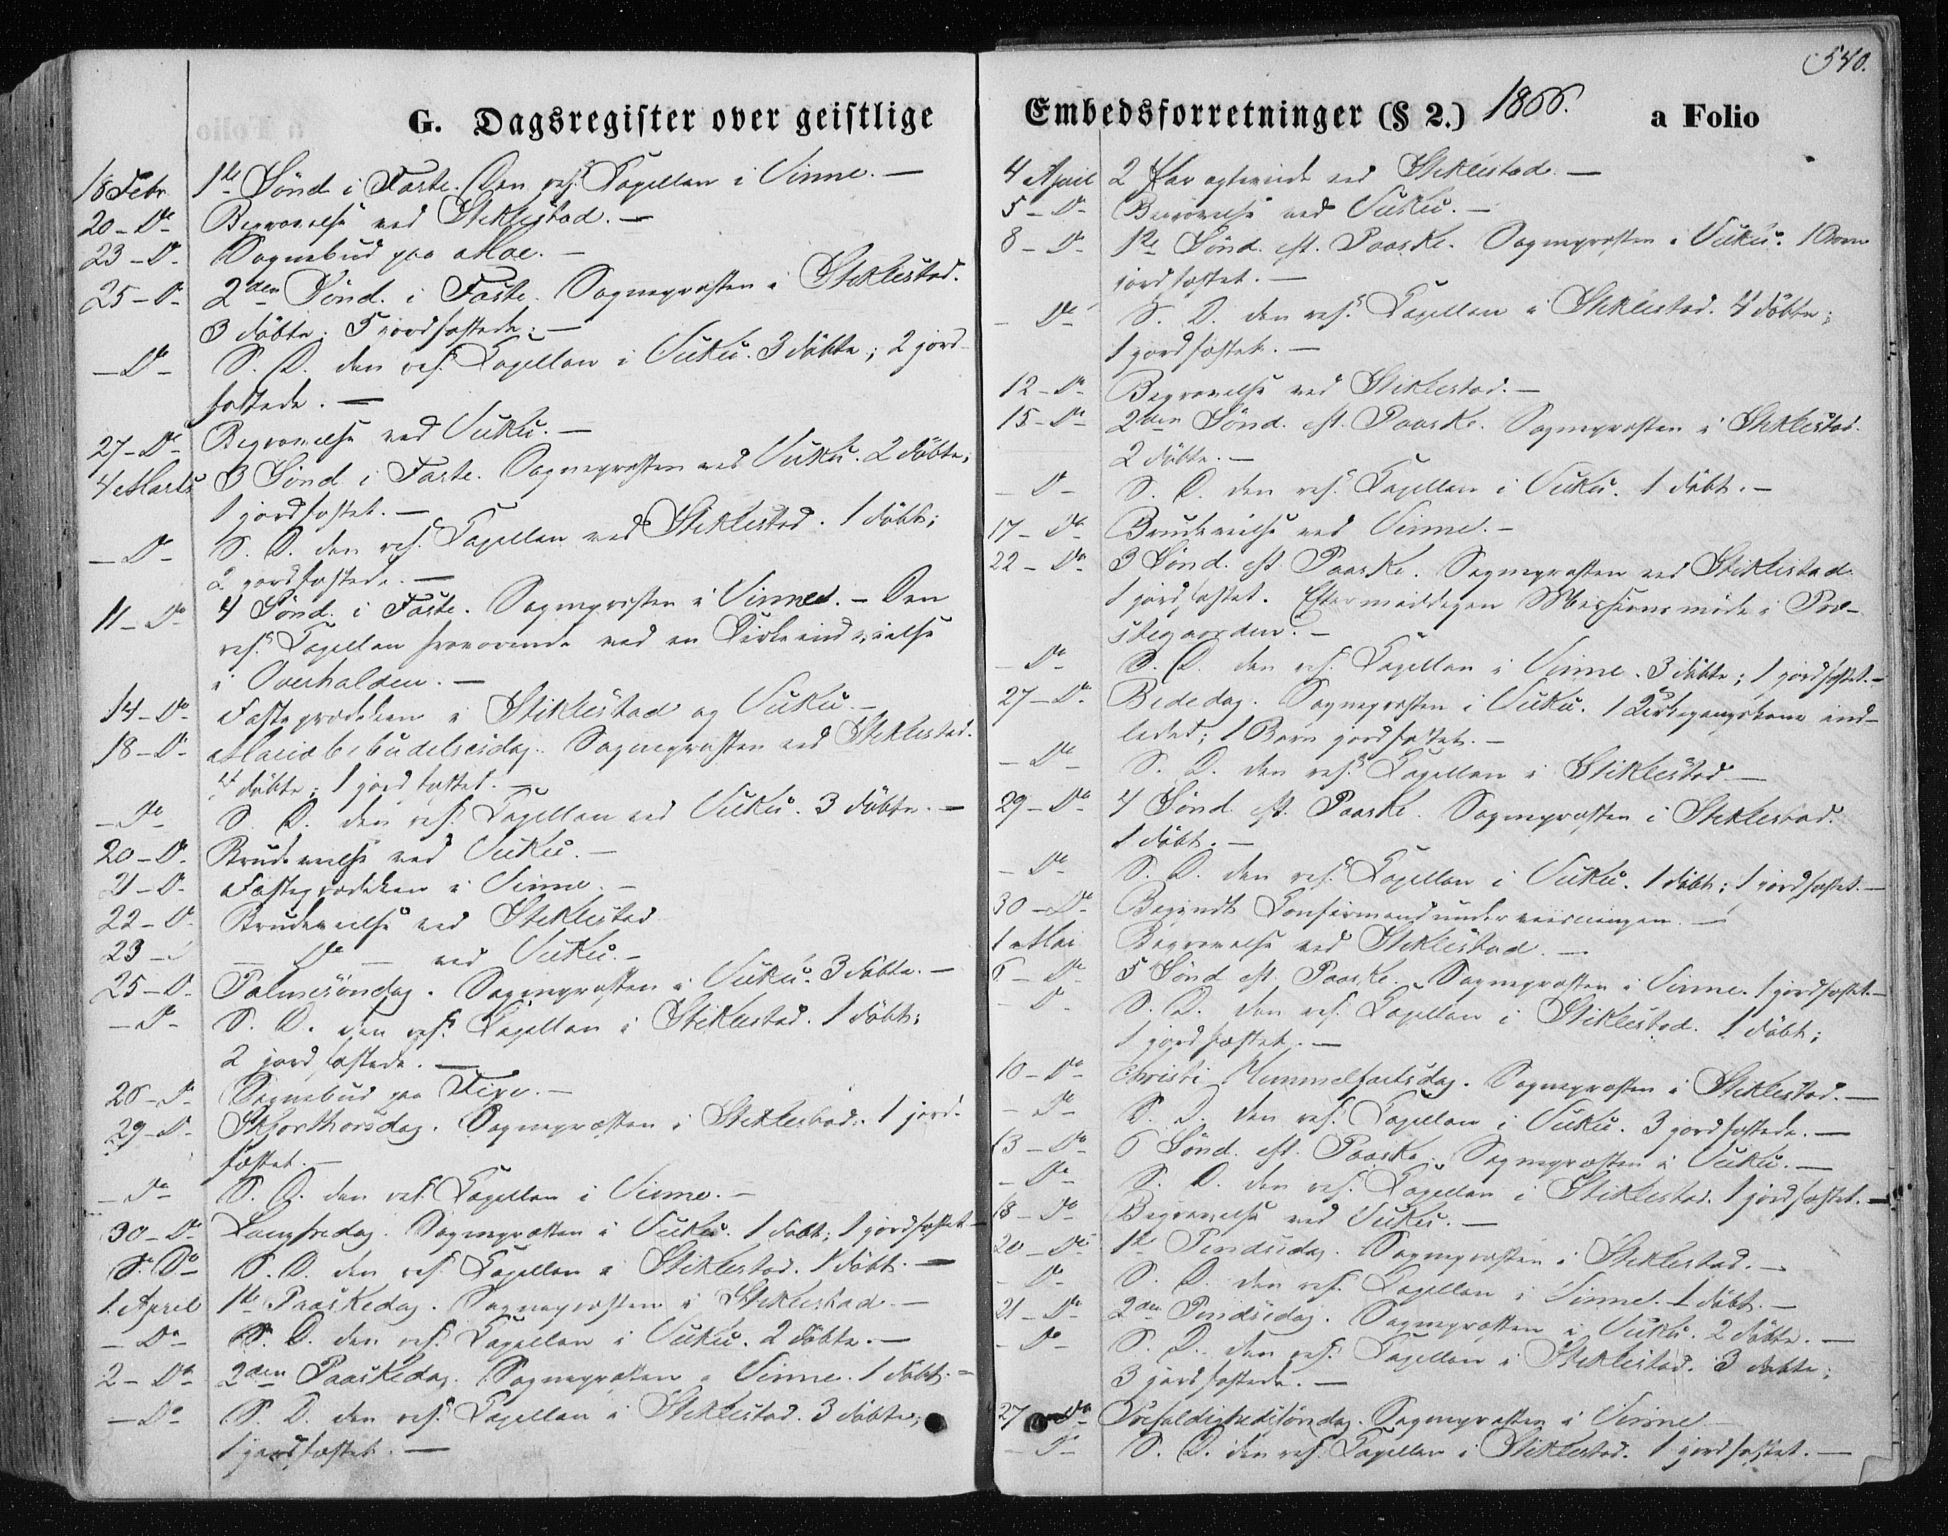 G. Dagsregister over geistlige
18 Febr. 1ste Sønd i Faste. Den res. Capellan i Vinne. —
20 – Do Begravelse ved Stiklestad. —
23 – Do Sognebud paa Moe. —
25 – Do 2den Sønd. i Faste. Sognepræsten i Stiklestad.
3 døbte; 5 jordfæstede. —
— Do – S. D. den res. Capellan i Vuku. 3 døbte; 2 jord-
fæstede. —
27 – Do Begravelse ved Vuku. —
4 Marts 3 Sønd i Faste. Sognepræsten ved Vuku. 2 døbte;
1 jordfæstet. —
— Do – S. D. den res. Capellan ved Stiklestad. 1 døbt;
2 jordfæstede. —
11 – Do 4 Sønd. i Faste. Sognepræsten i Vinne. – Den
res. Capellan fraværende ved en Kirkeindvielse
i Overhalden. —
14 – Do Fasteprædiken i Stiklestad og Vuku. —
18 – Do Mariæbebudelsesdag. Sognepræsten ved Stiklestad.
4 døbte; 1 jordfæstet. —
— Do S. D. den res. Capellan ved Vuku. 3 døbte. —
20 – Do Brudevielse ved Vuku. —
21 – Do Fasteprædiken i Vinne. —
22 – Do Brudevielse ved Stiklestad
23 – — Do — ved Vuku. —
25 – Do Palmesøndag. Sognepræsten i Vuku. 3 døbte. —
— Do – S. D. den res. Capellan i Stiklestad. 1 døbt;
2 jordfæstede. —
26 – Do Sognebud paa —
29 – Do Skjærthorsdag. Sognepræsten i Stiklestad. 1 jord-
fæstet. —
— Do S. D. den res. Capellan i Vinne. —
30 – Do Langfredag. Sognepræsten i Vuku. 1 døbt; 1 jordfæstet —
S. Do S. D. den res. Capellan i Stiklestad. 1 døbt. —
1 April 1ste Paaskedag. Sognepræsten i Stiklestad. —
— Do – S. D. den res. Capellan i Vuku. 2 døbte. —
2 – Do 2den Paaskedag. Sognepræsten i Vinne. 1 døbt. —
— Do S. D. den res. Capellan i Stiklestad. 3 døbte;
1 jordfæstet. —
540.
Embedsforretninger (§ 2.) 1866. a Folio
4 April 2 Par ægteviede ved Stiklestad. —
5 – Do – Begravelse ved Vuku. —
8 – Do – 1ste Sønd. eft. Paaske. Sognepræsten i Vuku. 1 Barn
jordfæstet. —
— Do S. D. den res. Capellan i Stiklestad. 4 døbte;
1 jordfæstet. —
12 – Do Begravelse ved Stiklestad. —
15 – Do 2den Sønd. eft. Paaske. Sognepræsten i Stiklestad.
2 døbte. —
— Do – S. D. den res. Capellan i Vuku. 1 døbt. —
17 – Do Brudevielse ved Vinne. —
22 – Do 3 Sønd. eft Paaske. Sognepræsten ved Stiklestad
1 jordfæstet. Eftermiddagen Missionsmöde i Præ-
stegaarden. —
— Do S. D. den res. Capellan i Vinne. 3 døbte; 1 jordfæstet. —
27 – Do Bededag. Sognepræsten i Vuku. 1 Kirkegangskone ind-
ledet; 1 Barn jordfæstet. —
— Do S. D. den res. Capellan i Stiklestad —
29 – Do 4 Sønd. eft. Paaske. Sognepræsten i Stiklestad.
1 døbt. —
— Do S. D. den res. Capellan i Vuku. 1 døbt; 1 jordfæstet. —
30 – Do Begyndt Confirmandunderviisningen. —
1 Mai Begravelse ved Stiklestad. —
6 – Do 5 Sønd eft. Paaske. Sognepræsten i Vinne. 1 jordfæstet —
— Do S. D. den res. Capellan i Stiklestad. 1 døbt;
1 jordfæstet. —
10 – Do Christi Himmelfartsdag. Sognepræsten i Stiklestad. —
— Do S. D. den res. Capellan i Vuku. 3 jordfæstede. —
13 – Do 6 Sønd. eft. Paaske. Sognepræsten i Vuku. —
— Do S. D. den res. Capellan i Stiklestad. 1 jordfæstet. —
18 – Do Begravelse ved Vuku. —
20 – Do 1ste Pindsedag. Sognepræsten i Stiklestad. —
— Do S. D. den res. Capellan i Vinne. 1 døbt. —
21 – Do 2den Pindsedag. Sognepræsten i Vuku. 2 døbte. —
— Do S. D. den res. Capellan i Stiklestad. 3 døbte;
3 jordfæstede. —
27 Do Trefoldighedssøndag. Sognepræsten i Vinne —
— Do S. D. den res. Capellan i Stiklestad. 1 jordfæstet. —